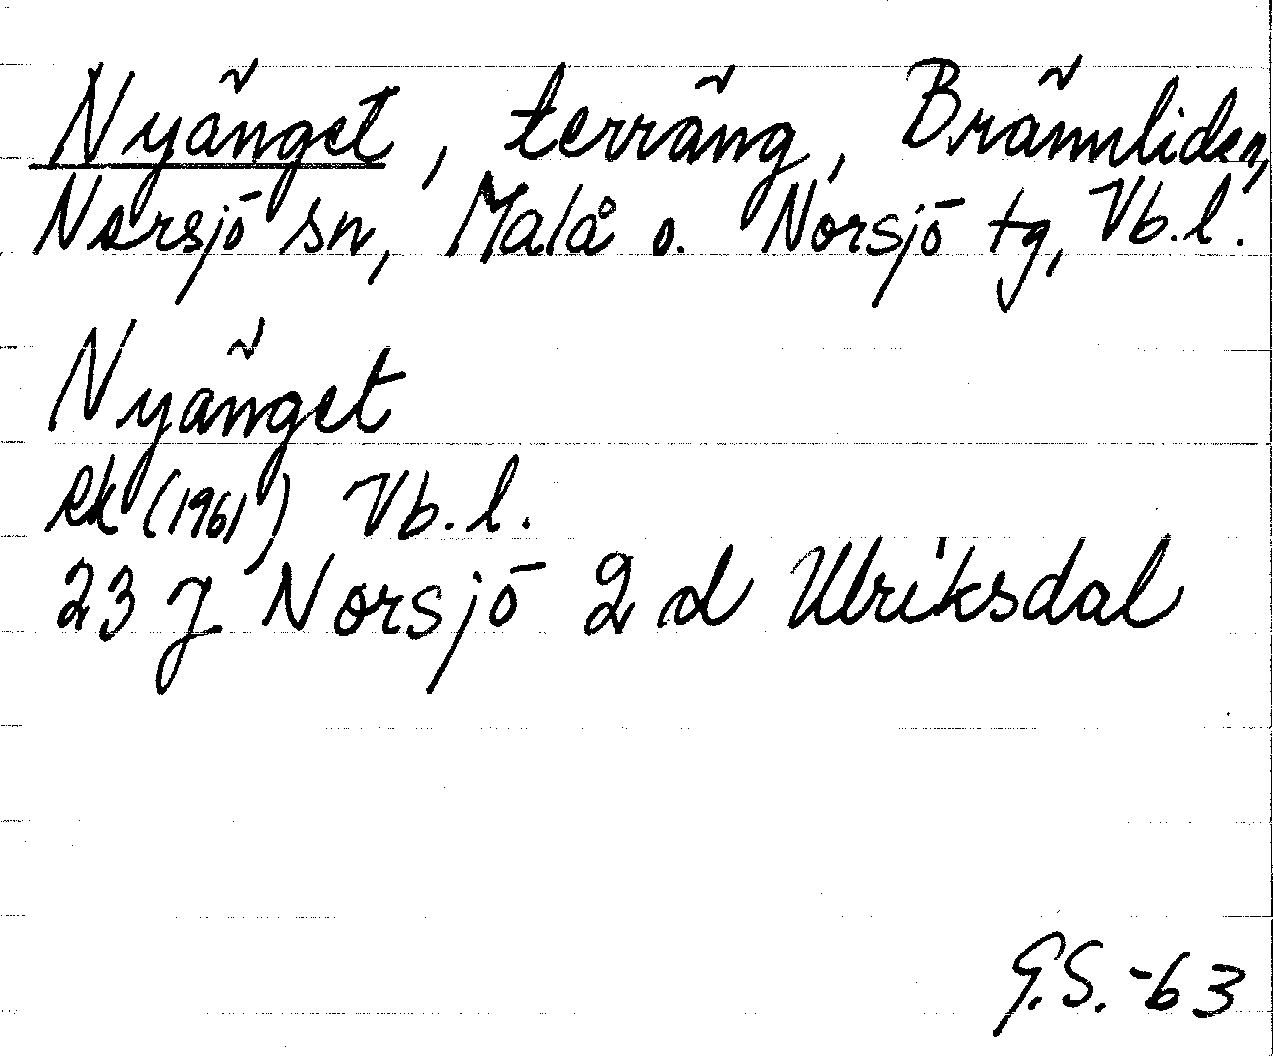 Nyänget, terräng, Brännliden,
Norsjö sn, Malå o. Norsjö tg, Vb.l.
Nyänget
ek (1961) Vb.l.
23 J Norsjö 2 d Ulriksdal
G.S. -63